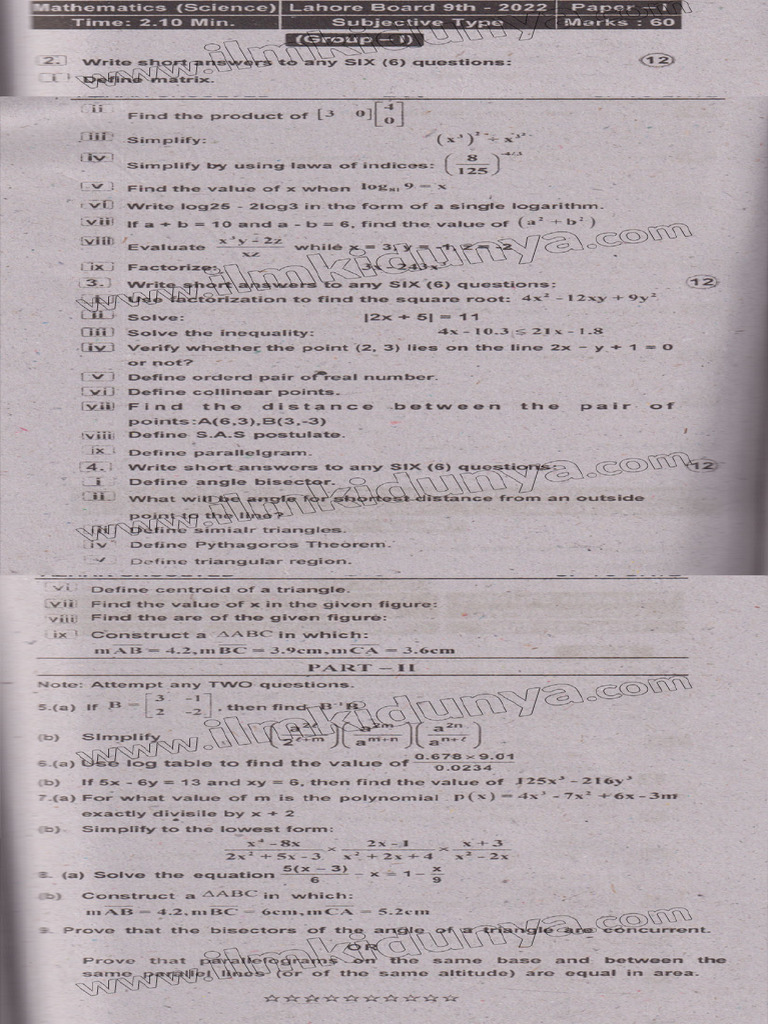 Mathematics (Science) Lahore Board 9th - 2022 Paper - I
Time: 2.10 Min. Subjective Type Marks : 60
(Group - I)
2. Write short answers to any SIX (6) questions: (12)
i Define matrix.
ii Find the product of [3 0][4 0]
iii Simplify: (x³)² ÷ x³²
iv Simplify by using lawa of indices: (8/125)^-4/3
v Find the value of x when log 9 = x
vi Write log25 - 2log3 in the form of a single logarithm.
vii If a + b = 10 and a - b = 6, find the value of (a² + b²)
viii Evaluate x³y - 2z / xz while x = 3, y = -1, z = -2
ix Factorize: 3x - 243x
3. Write short answers to any SIX (6) questions: (12)
i Use factorization to find the square root: 4x² - 12xy + 9y²
ii Solve: |2x + 5| = 11
iii Solve the inequality: 4x - 10.3 ≤ 21x - 1.8
iv Verify whether the point (2, 3) lies on the line 2x - y + 1 = 0
or not?
v Define orderd pair of real number.
vi Define collinear points.
vii Find the distance between the pair of
points:A(6,3),B(3,-3)
viii Define S.A.S postulate.
ix Define parallelgram.
4. Write short answers to any SIX (6) questions: (12)
i Define angle bisector.
ii What will be angle for shortest distance from an outside
point to the line?
iii Define simialr triangles.
iv Define Pythagoros Theorem.
v Define triangular region.
vi Define centroid of a triangle.
vii Find the value of x in the given figure:
viii Find the are of the given figure:
ix Construct a ΔABC in which:
mAB = 4.2, mBC = 3.9cm, mCA = 3.6cm
PART - II
Note: Attempt any TWO questions.
5.(a) If B = [3 -1 2 -2], then find
(b) SImplify (a^2n / a^n+ℓ)
6.(a) Use log table to find the value of 0.678 × 9.01 / 0.0234
(b) If 5x - 6y = 13 and xy = 6, then find the value of 125x³ - 216y³
7.(a) For what value of m is the polynomial p(x) = 4x³ - 7x² + 6x - 3m
exactly divisile by x + 2
(b) Simplify to the lowest form:
x⁴ - 8x / 2x² + 5x - 3 × 2x - 1 / x² + 2x + 4 × x + 3 / x² - 2x
8. (a) Solve the equation 5(x - 3) / 6 - x = 1 - x/9
(b) Construct a ΔABC in which:
mAB = 4.2, mBC = 6cm, mCA = 5.2cm
9. Prove that the bisectors of the angle of a triangle are concurrent.
OR
Prove that parallelograms on the same base and between the
same parallel lines (or of the same altitude) are equal in area.
www.ilmkidunya.com
www.ilmkidunya.com
www.ilmkidunya.com
www.ilmkidunya.com
www.ilmkidunya.com